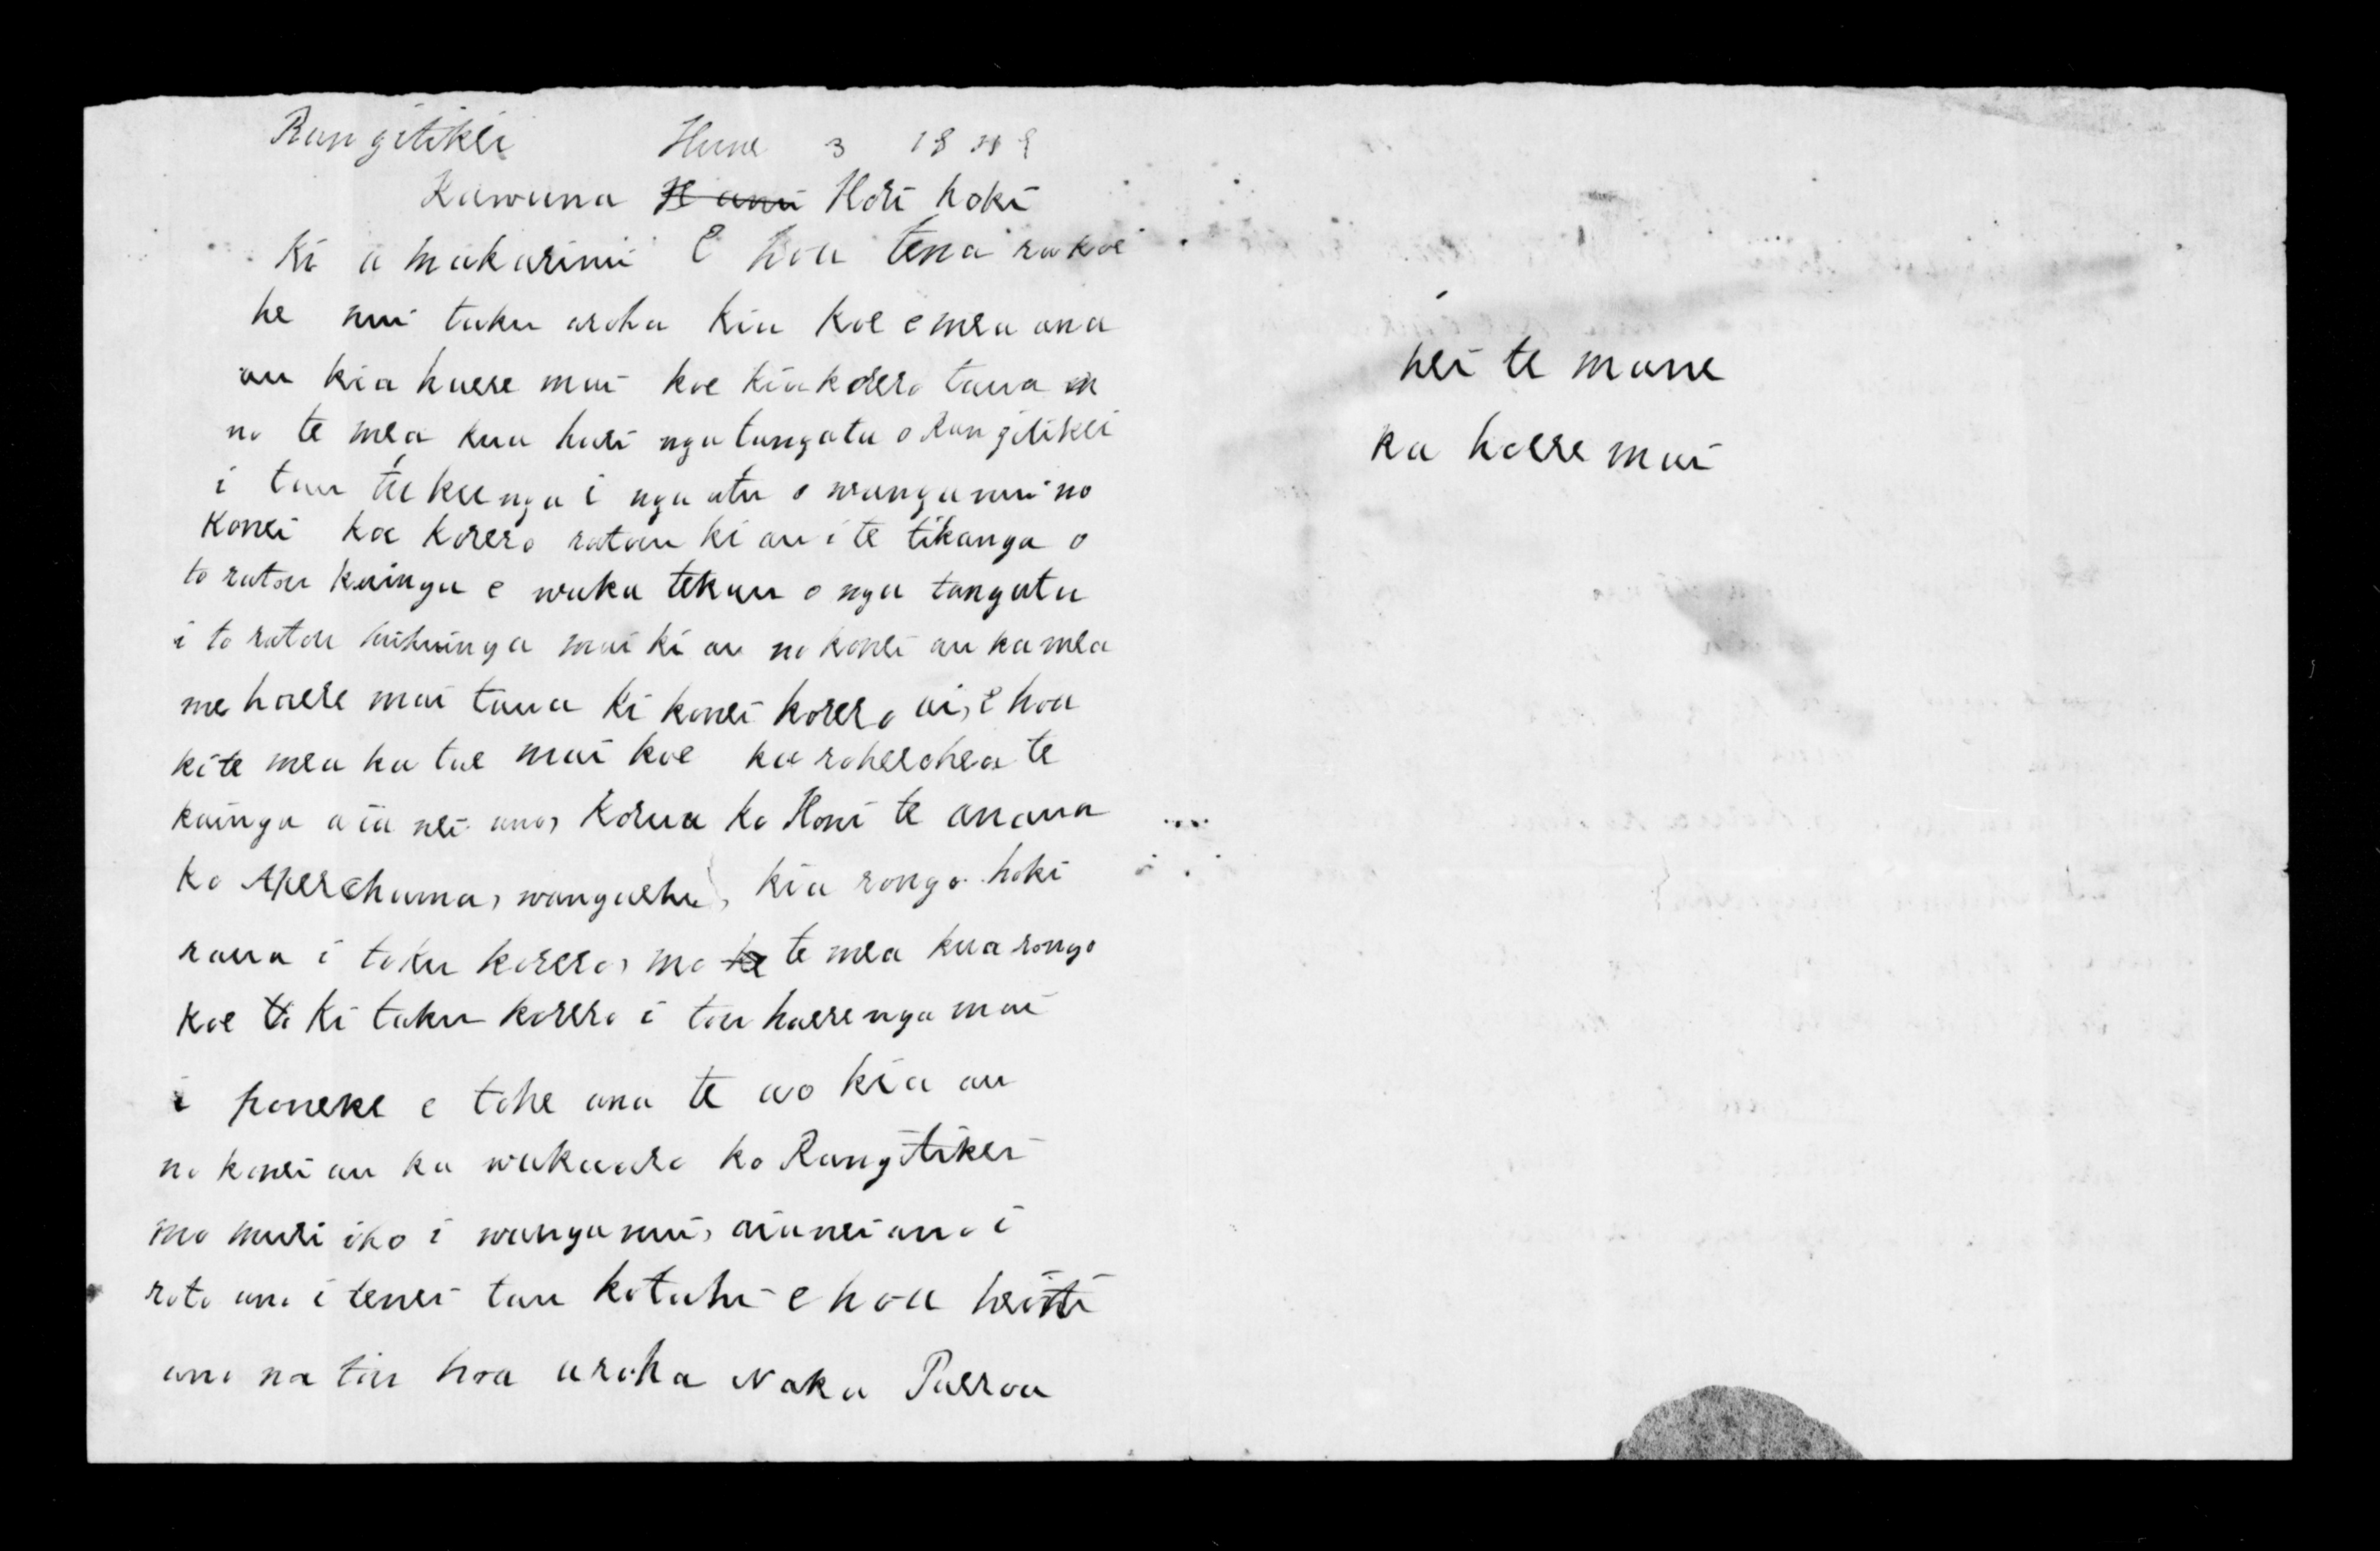 Rangitikei Hune 3 18
Kawana Hori hoki
Ki a makarini E hoa tena ra koe
he nui taku aroha kia koe e mea ana
au kia haere mai koe kia korero taua
no te mea kua hari nga tangata o Rangitikei
i tau tukunga i nga utu o wanganui no
konei koe korero ratou ki au i te tikanga o
to ratou kainga e waka tekau o nga tangata
i to ratou huihuinga mai ki au no konei au ka mea
me haere mai taua ki konei korero ai, e hoa
ki te mea ka tae mai koe ka roherohea te
kainga aia nei ano, Korua ko Honi te anaua
ko Aperahama, wangaehu, kia rongo hoki
raua i toku korero, mo te te mea kua rongo
koe ti ki taku korero i tou haerenga mai
i poneke e tohe ana te ao kia au
no konei au ka wakaaro ko Rangitikei
mo muri iho i wanganui, aianei ano i
roto ano i tenei tau kotahi e hoa heoiti
ano na tou hoa aroha Naku Paeroa
hei te mane
ka haere mai